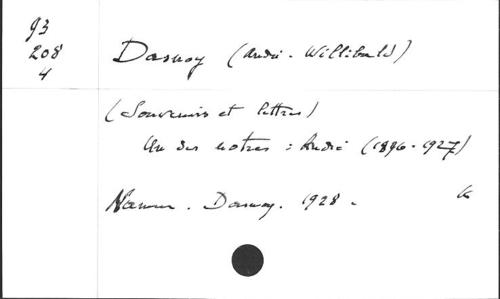 93
208
4
Dasnoy (André-Willibald)
(Souvenirs et lettres)
Un des notres : André (1896-1927)
Namur. Dasnoy. 1928.